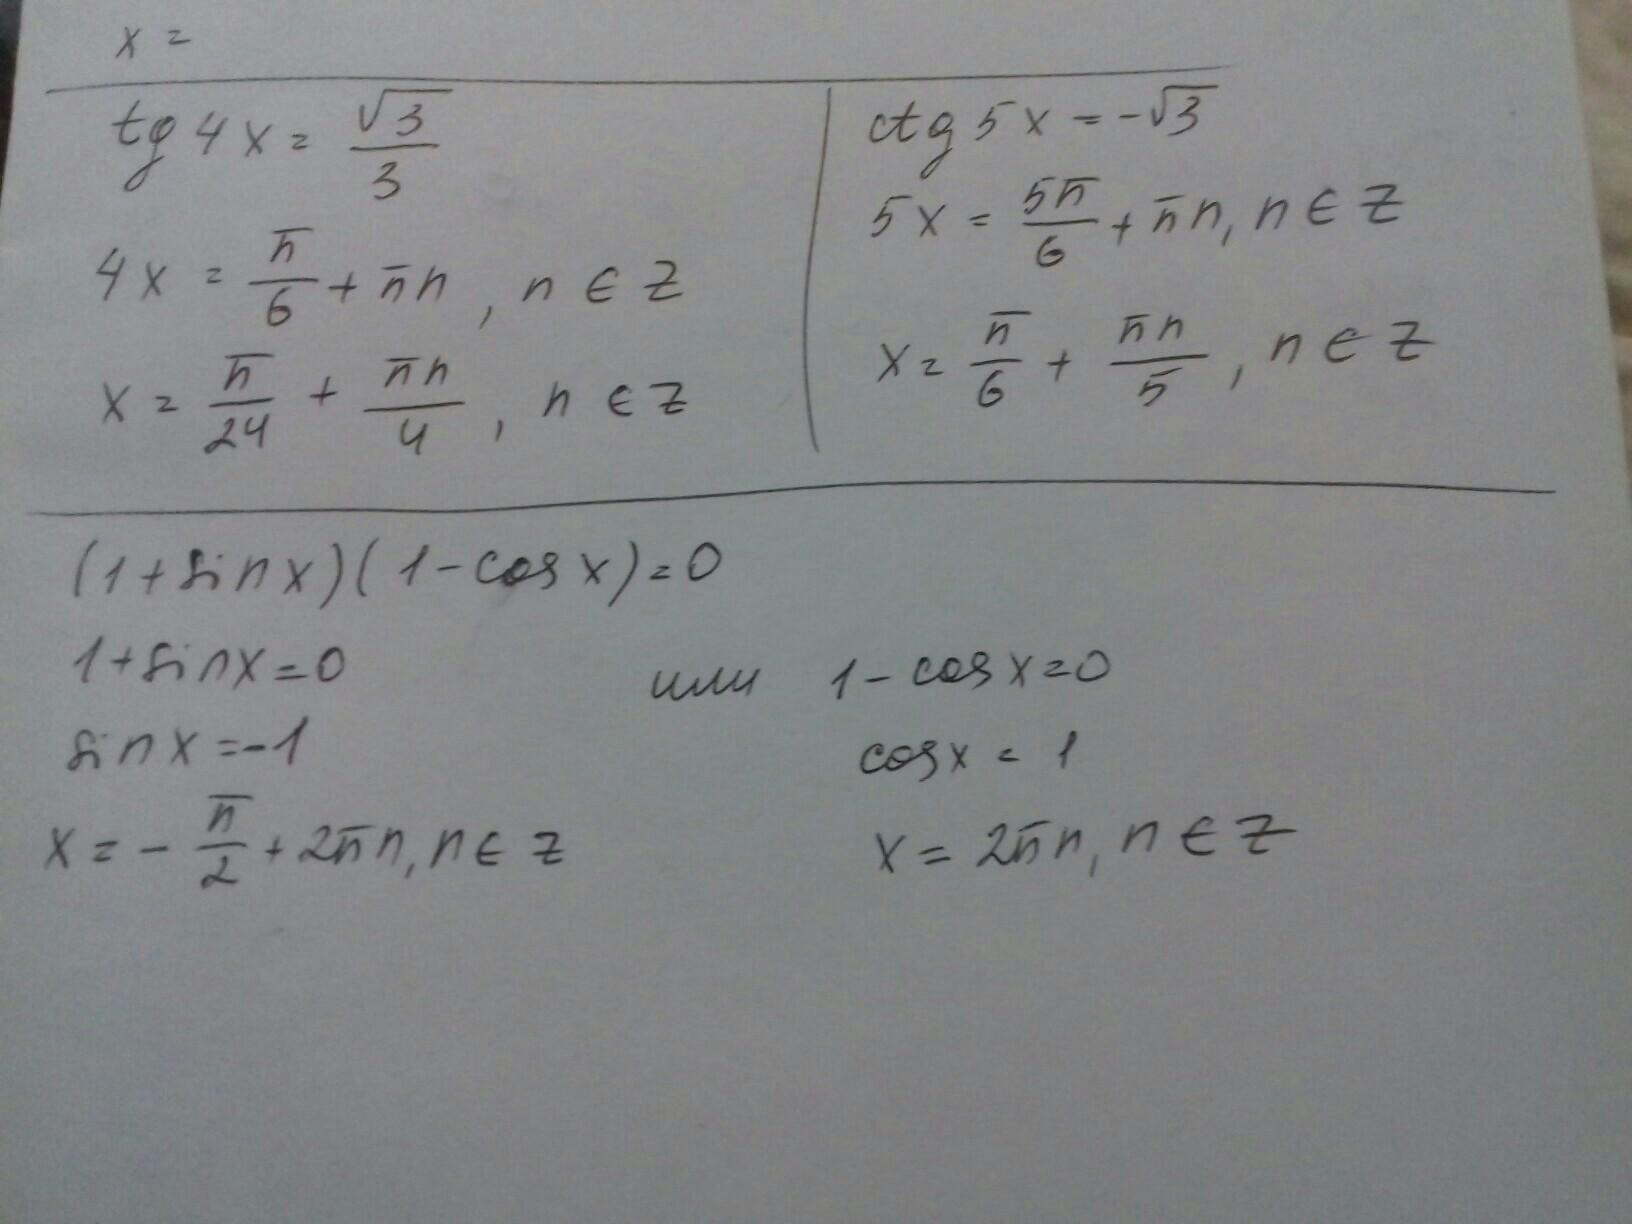 x =
tg 4x = √3/3
4x = π/6 + πn, n ∈ Z
x = π/24 + πn/4, n ∈ Z
ctg 5x = -√3
5x = 5π/6 + πn, n ∈ Z
x = π/6 + πn/5, n ∈ Z
(1+sinx)(1-cosx)=0
1+sinx=0 или 1-cosx=0
sinx=-1 cosx = 1
x = -π/2 + 2πn, n ∈ Z x = 2πn, n ∈ Z